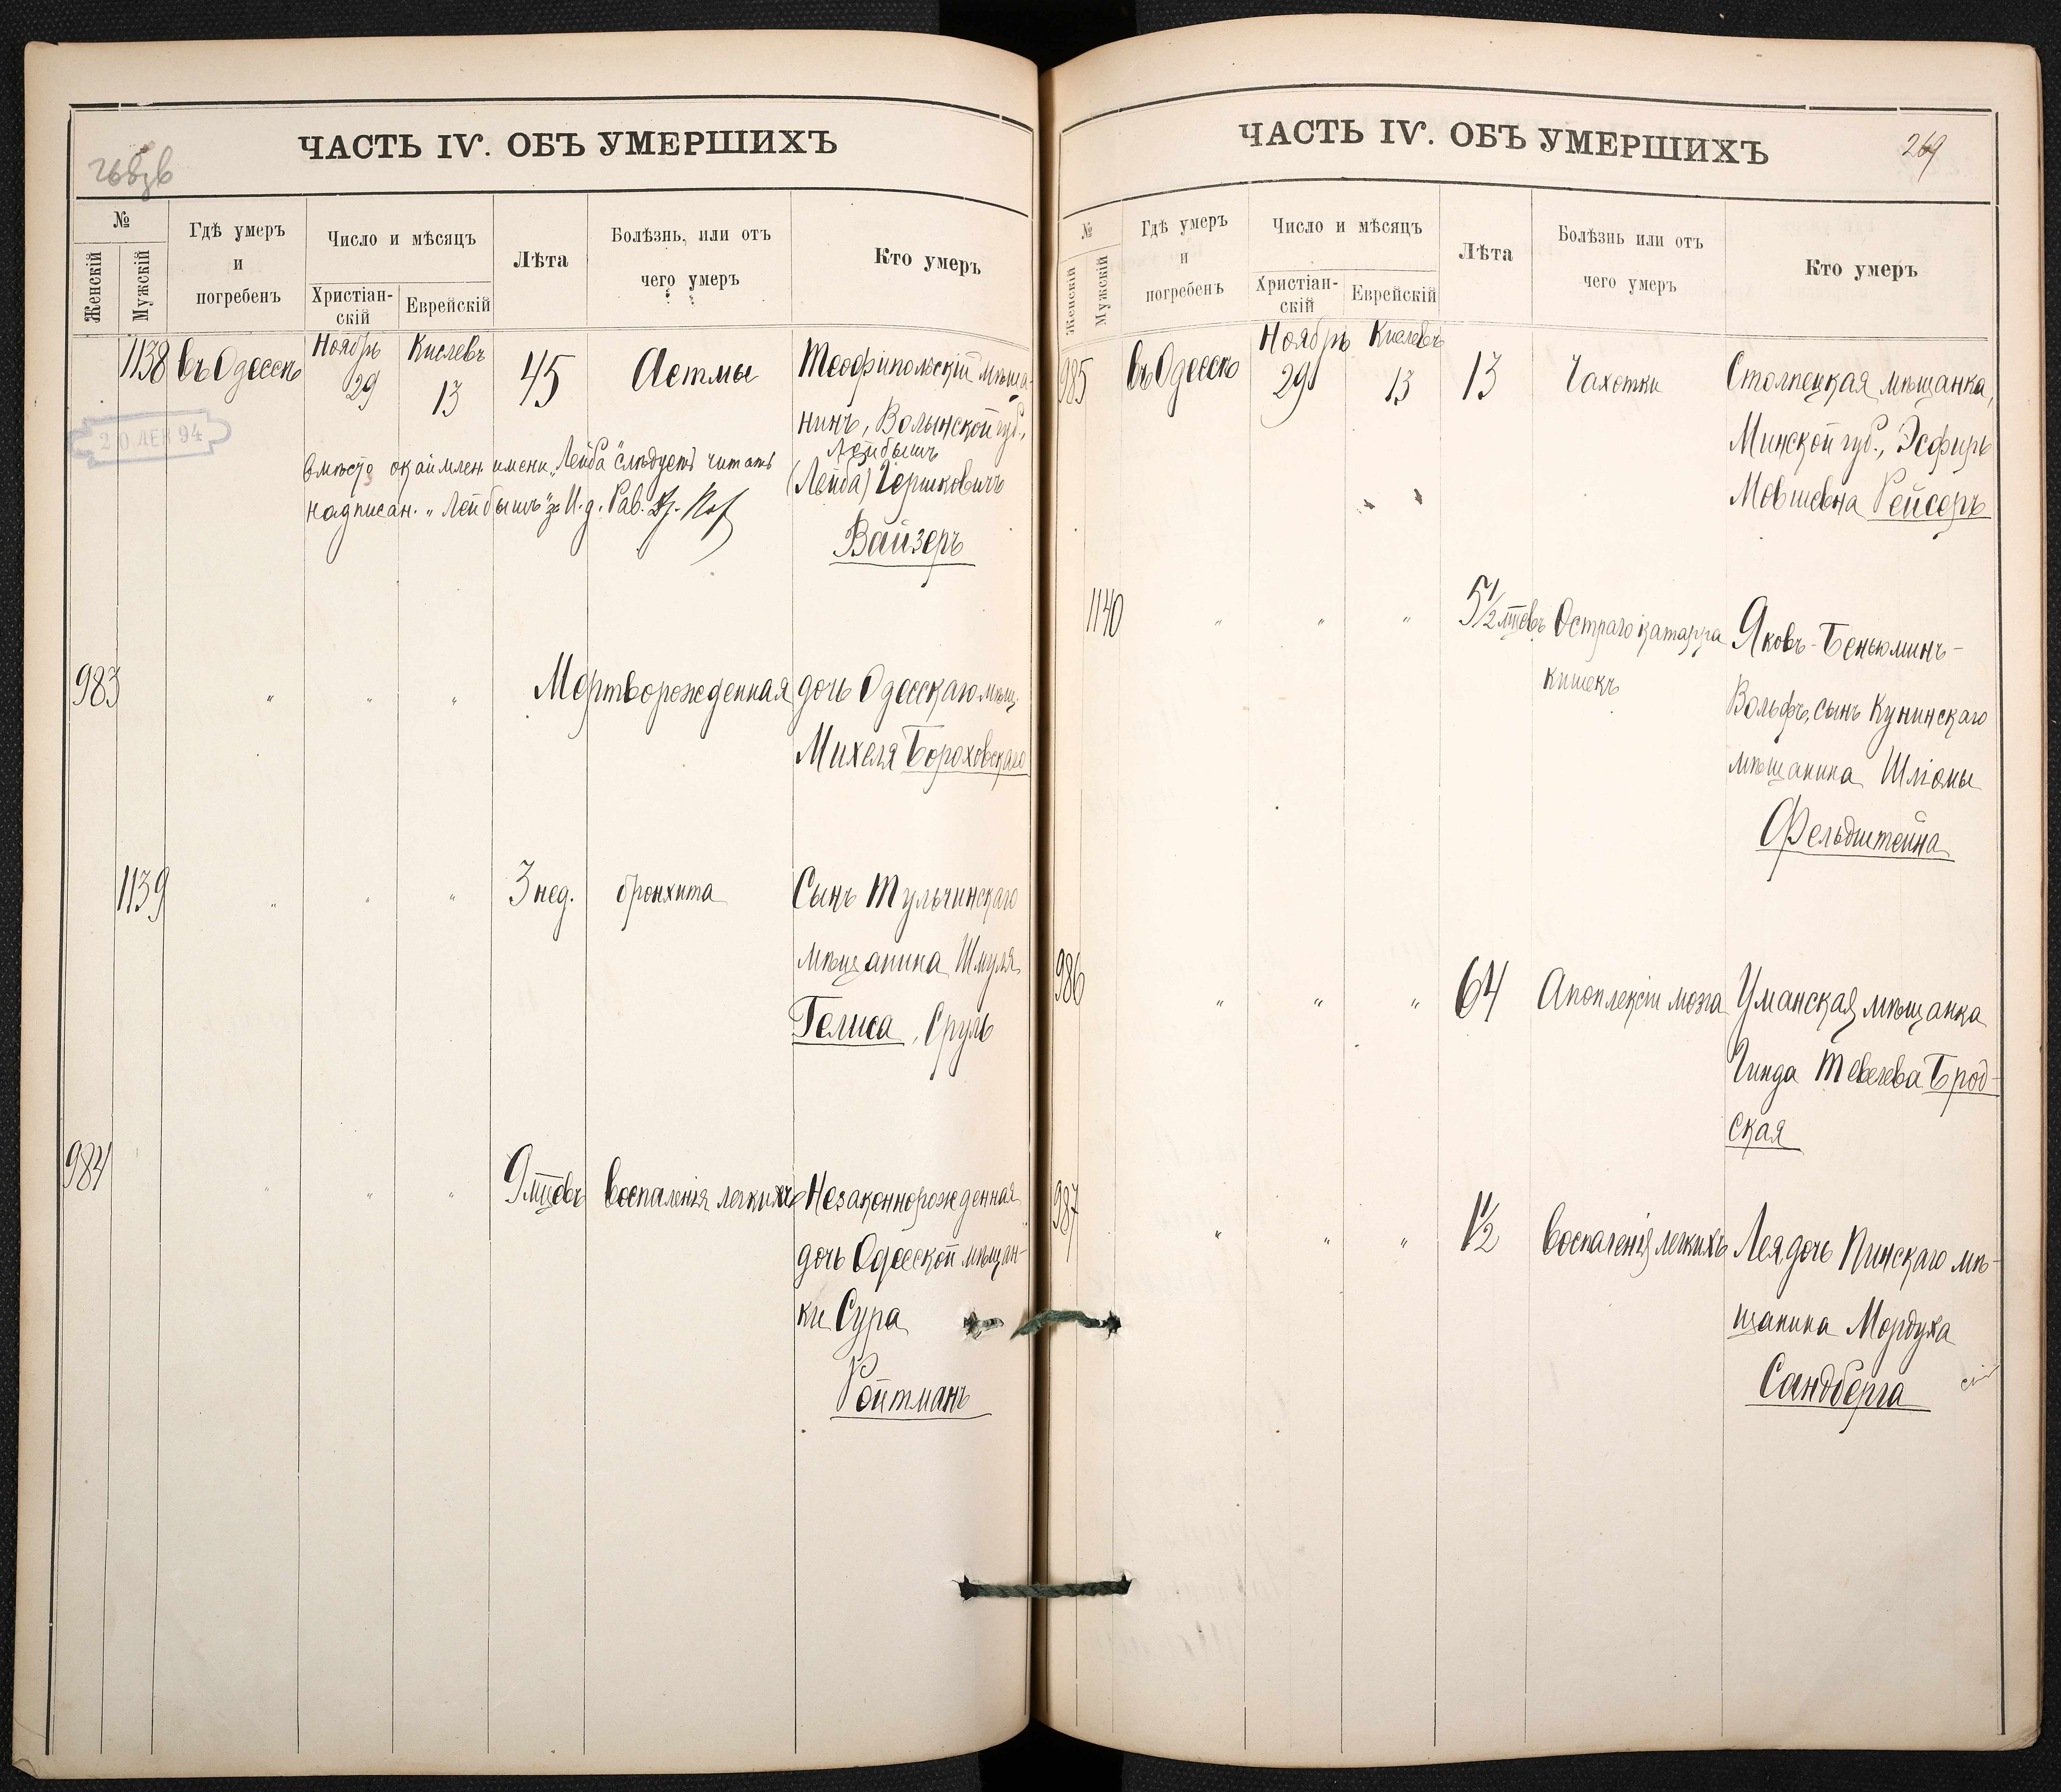 ЧАСТЬ IV. ОБЪ УМЕРШИХЪ
№
Женскій
Мужскій
Гдѣ умеръ
и
погребенъ
Число и мѣсяцъ
Христіан-
скій
Еврейскій
Лѣта
Болѣзнь, или отъ
чего умеръ
Кто умеръ
1138 въ Одессѣ Ноябрь 29 Кислевъ 13 45 Астмы Теофипольскій мѣща-
нинъ, Волынской губ.,
Лейбышъ
(Лейба) Гершковичъ
Вайзеръ
20 ДЕК 94
вмѣсто окаймлен. имени „Лейба" слѣдуетъ читать
надписан. „Лейбышъ" за И. д. Рав.
983 " " " Мертворожденная дочь Одесскаго мѣщ.
Михеля Бороховскаго
1139 " " " 3 нед. бронхита Сынъ Тульчинскаго
мѣщанина Шмуля
Гелиса, Сруль
984 " " " 9 мцевъ воспаленія легкихъ Незаконнорожденная
дочь Одесской мѣщан-
ки Сура
Ройтманъ
ЧАСТЬ IV. ОБЪ УМЕРШИХЪ
269
№
Женскій
Мужскій
Гдѣ умеръ
и
погребенъ
Число и мѣсяцъ
Христіан-
скій
Еврейскій
Лѣта
Болѣзнь или отъ
чего умеръ
Кто умеръ
985 въ Одессѣ Ноябрь 29 Кислевъ 13 13 Чахотки Столпецкая мѣщанка,
Минской губ., Эсфирь
Мовшевна Рейсеръ
1140 " " " 5½ мцевъ Остраго катарра Яковъ-Беньюминъ-
кишекъ
Вольфъ, сынъ Кунинскаго
мѣщанина Шлiомы
Фельдштейна
986 " " " 64 Апоплексіи мозга Уманская мѣщанка
Гинда Тевелева Брод-
ская
987 " " " 1½ воспаленія легкихъ Лея дочь Пинскаго мѣ-
щанина Мордуха
Сандберга